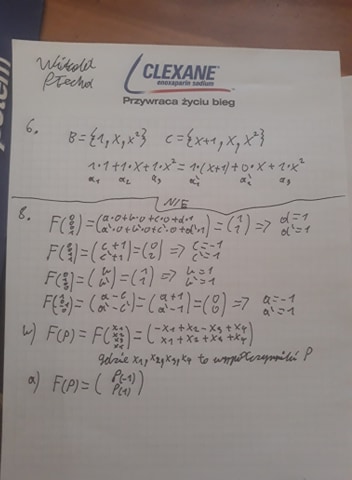 Witold
Płecha
CLEXANE®
enoxaparin sodium
Przywraca życiu bieg
6.
B={1,x,x²} C={x+1,x,x²}
1·1+1·x+1·x²=1·(x+1)+0·x+1·x²
a₁ a₂ a₃ a₁' a₂' a₃
NIE
8. F(0 0 0 1)=(a·0+b·0+c·0+d·1 a'·0+b'·0+c'·0+d'·1)=(1 1)=> d=1 d'=1
F(0 0 1 1)=(c+1 c'+1)=(0 2)=> c=-1 c'=1
F(0 1 0 0)=(b b')=(1 1)=> b=1 b'=1
F(1 0 -1 0)=(a-c a'-c')=(a+1 a'-1)=(0 0)=> a=-1 a'=1
b) F(p)=F(x₁ x₂ x₃ x₄)=(-x₁+x₂-x₃+x₄ x₁+x₂+x₃+x₄)
gdzie x₁,x₂,x₃,x₄ to współczynniki P
a) F(p)=(P(-1) P(1))